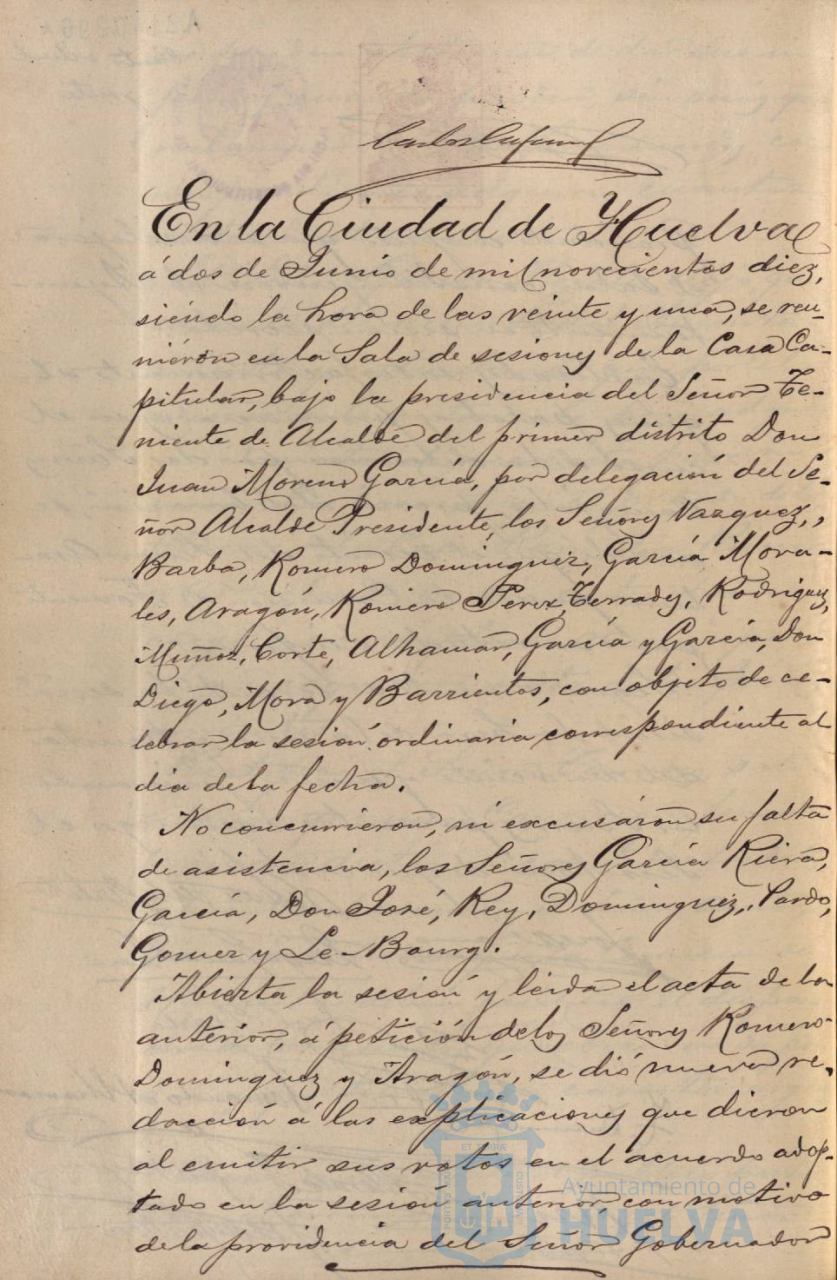 En la Ciudad de Huelva
á dos de Junio de mil novecientos diez,
siendo la hora de las veinte y una, se reu-
nieron en la Sala de sesiones de la Casa Ca-
pitular, bajo la presidencia del Señor Te-
niente de Alcalde del primer distrito Don
Juan Moreno García, por delegación del Se-
ñor Alcalde Presidente, los Señores Vazquez,
Barba, Romero Dominguez, García Mora-
les, Aragón, Romero Perez, Terrades, Rodriguez,
Muñoz, Corte, Alhamar, García y García, Don
Diego, Mora y Barrientos, con objeto de ce-
lebrar la sesión ordinaria correspondiente al
dia de la fecha.
No concurrieron, ni excusaron su falta
de asistencia, los Señores García Riera,
García, Don José, Rey, Dominguez, Pardo,
Gomez y Le-Bourg.
Abierta la sesión y leida el acta de la
anterior, á petición de los Señores Romero
Dominguez y Aragón, se dió nueva re-
dacción á las explicaciones que dieron
al emitir sus votos en el acuerdo adop-
tado en la sesión anterior con motivo
de la providencia del Señor Gobernador
Ayuntamiento de
HUELVA